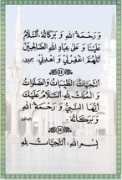 وَ رَحْمَةُ اللهِ وَ بَرَكَاتُهُ، اَلسَّلَامُ
عَلَيْنَا وَ عَلَى عِبَادِ اللهِ الصَّالِحِينَ
اَللَّهُمَّ اغْفِرْ لِي وَ اهْدِنِي
اَلتَّحِيَّاتُ الطَّيِّبَاتُ وَالصَّلَوَاتُ
وَ الْمُلْكُ لِلَّهِ اَلسَّلَامُ عَلَيْكَ
أَيُّهَا النَّبِيُّ وَ رَحْمَةُ اللهِ
وَ بَرَكَاتُهُ
بِسْمِ اللهِ، اَلتَّحِيَّاتُ لِلَّهِ